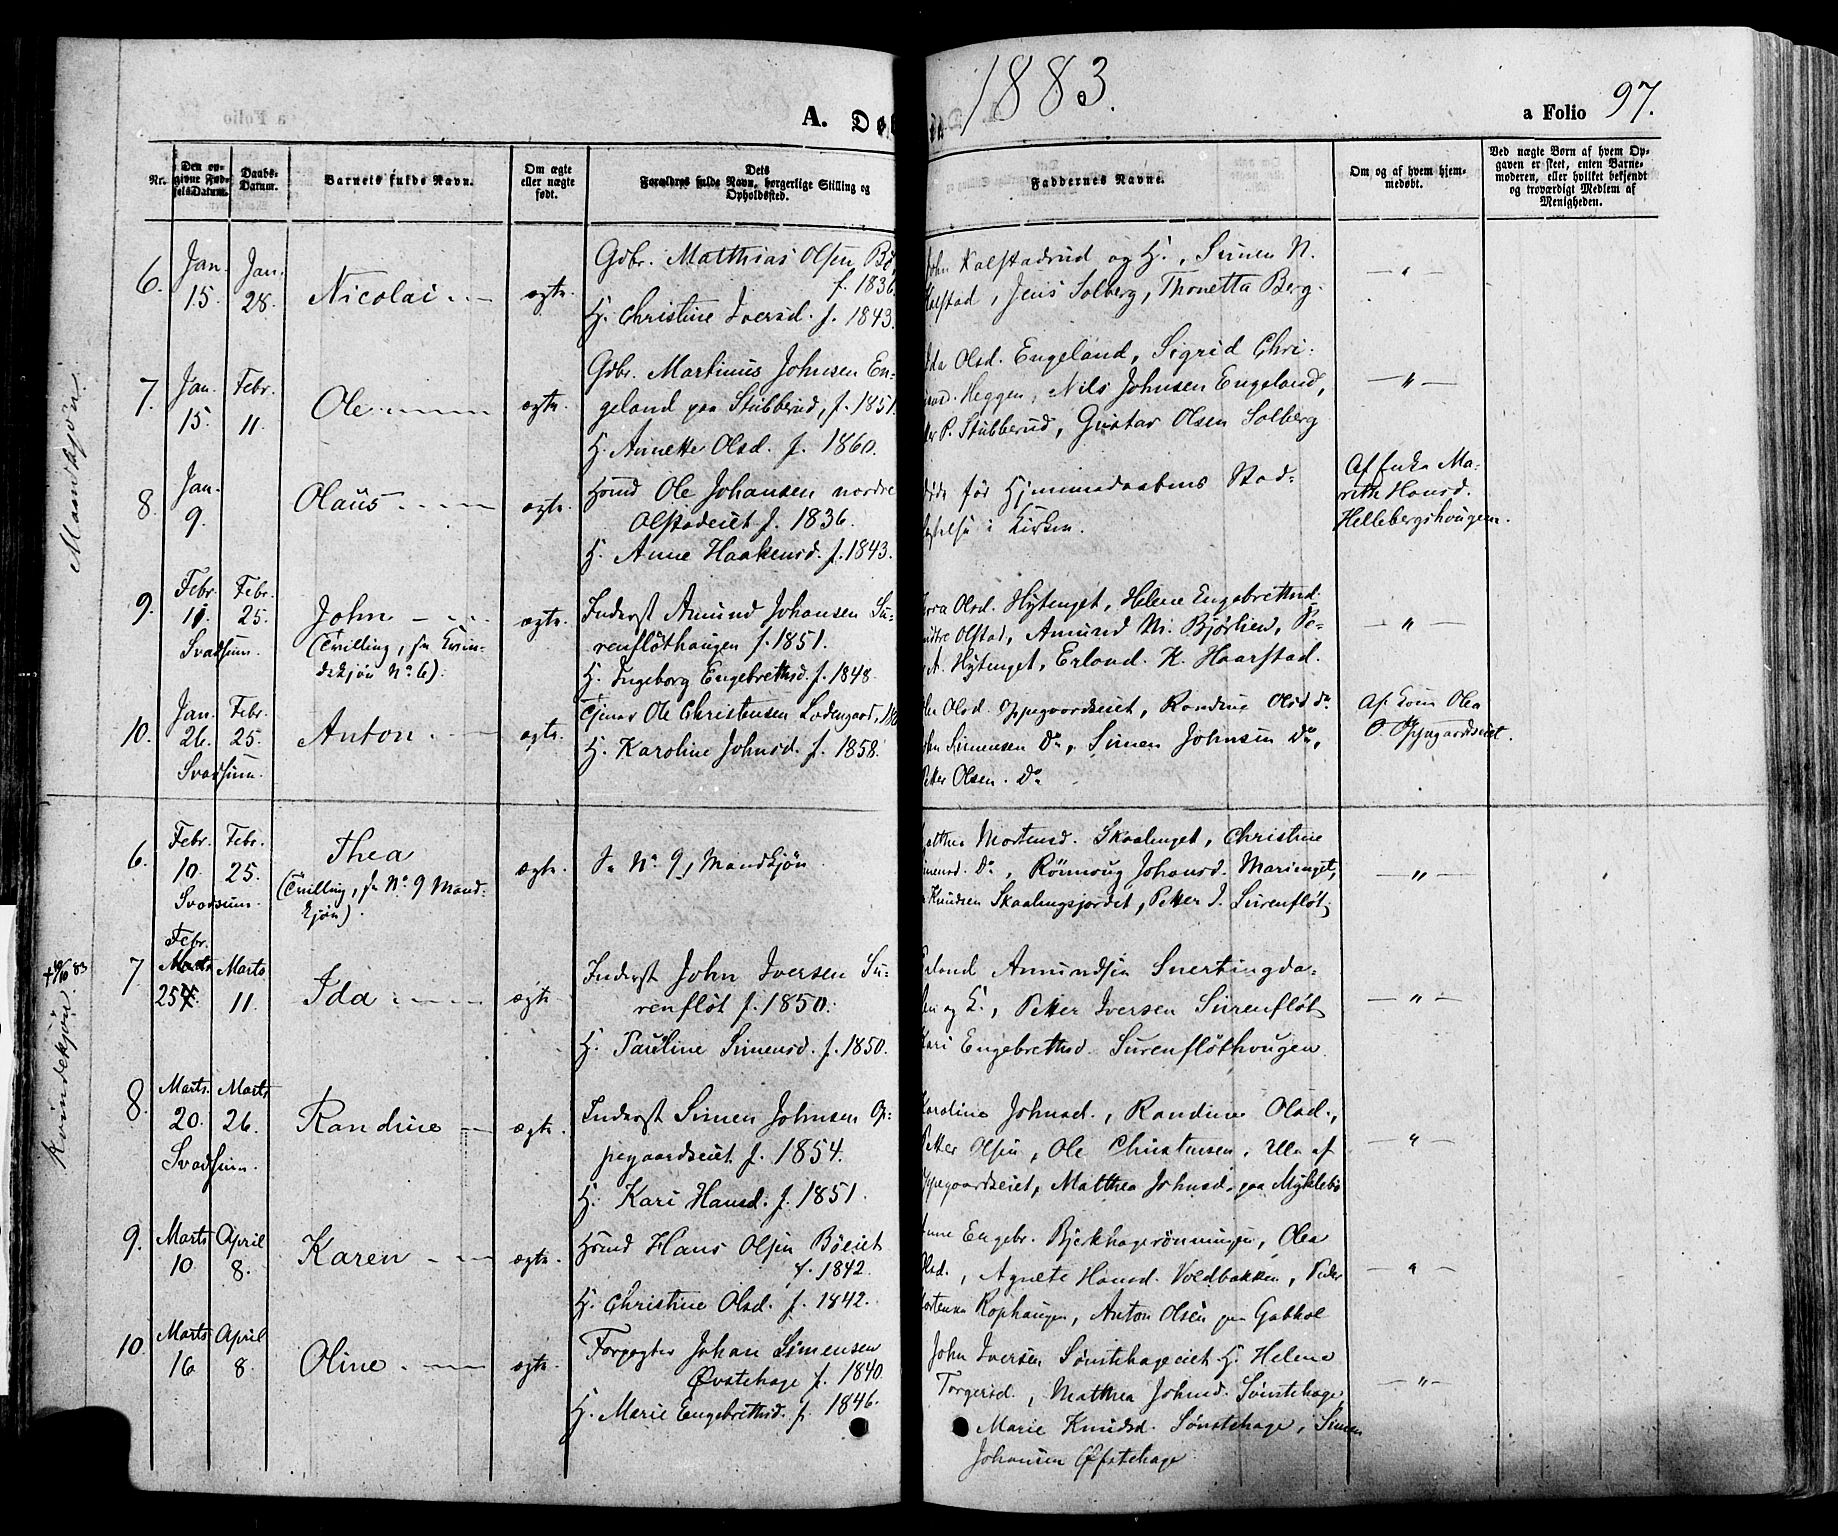 1883.
A. Døb
a Folio 97.
Nr.
Den opgivne Fødselsdatum.
Daabs-Datum.
Barnets fulde Navn.
Om ægte eller uægte født.
Dets Forældres fulde Navn, borgerlige Stilling og Opholdssted.
Faddernes Navne.
Om og af hvem hjemmedøbt.
Ved uægte Børn af hvem Opgaven er skeet, enten Barnemoderen, eller hvilket bekjendt og troværdigt Medlem af Menigheden.
Mandkjøn.
6. Jan. 15. Jan. 28. Nicolai
ægte.
Gbr. Matthias Olsen
f. 1836
H. Christine Iversd. f. 1843.
John Kalstadrud og H., Simen N.
Haarstad, Jens Solberg, Thonetta Berg.
— " —
7. Jan. 15. Febr. 11. Ole
ægte.
Gdbr. Martinus Johnsen En-
geland paa Stubberud, f. 1851.
H. Annette Olsd. f. 1860.
Olsd. Engeland, Sigrid Chri-
Heggen, Nils Johnsen Engeland,
P. Stubberud, Gustav Olsen Solberg
— " —
8. Jan. 9. Olaus
ægte.
Hsmd Ole Johansen nordre
Olstadeiet f. 1836.
H. Anne Haakensd. f. 1843.
døde før Hjemmedaabens Stad-
fæstelse i Kirken.
Af Enke Ma-
rethe Hansd.
Hellebergshougen.
9. Febr. 11. Febr. 25. John
Svadsum.
(Tvilling, se Kvin-
dekjøn No 6).
ægte.
Inderst Amund Johansen Su-
renflöthaugen f. 1851.
H. Ingeborg Engebrethsd. f. 1848.
Olsd. Hytenget, Helene Engebrethsd.
Olstad, Amund M. Bjørlien, Pe-
A. Hytenget, Erland K. Haarstad.
— " —
10. Jan. 26. Febr. 25. Anton
Svadsum.
ægte.
Tjener Ole Christensen Lodengaard,
H. Karoline Johnsd. f. 1858.
Olsd. Oppegaardseiet, Randine Olsd do
Simensen Do, Simen Johnsen Do,
Petter Olsen. Do
Af Kone Olea
O. Oppegaardseiet.
Kvindekjøn.
6. Febr. 10. Febr. 25. Thea
Svadsum.
(Tvilling, se No 9 Mand-
kjøn).
ægte.
Se No 9, Mandkjøn
Matthea Mortensd. Skaalenget, Christine
Simensd. Do, Rönnoug Johansd. Marienget,
Knudsen Skaalengsjordet, Petter I. Surenflöt
— " —
7. Febr. 25. Marts 11. Ida
ægte.
Inderst John Iversen Su-
renflöt f. 1850.
H. Pauline Simensd. f. 1850.
Erland Amundsen Snertingda-
len og K., Petter Iversen Surenflöt
Kari Engebrethsd. Surenflöthougen.
— " —
8. Marts 20. Marts 26. Randine
Svadsum.
ægte.
Inderst Simen Johnsen Op-
pegaardseiet f. 1854.
H. Kari Hansd. f. 1851.
Karoline Johnsd., Randine Olsd.,
Petter Olsen, Ole Christensen, Alle af
Oppegaardseiet, Matthea Johnsd. paa Myklebö
— " —
9. Marts 10 April 8. Karen
ægte.
Hsmd Hans Olsen Böeiet
f. 1842.
H. Christine Olsd. f. 1842.
Anne Engebr. Bjerkhagerönningen, Olea
Olsd., Agnete Hansd. Voldbakken, Peder
Mortensen Rophaugen, Anton Olsen paa Gabkol
— " —
10. Marts 16 April 8. Oline
ægte.
Forpagter Johan Simensen
Øvstehage f. 1840.
H. Marie Engebrethsd. f. 1846.
John Iversen Sønstehageeiet H. Helene
Torgersd., Matthea Johnsd. Sønstehage
Marie Knudsd. Sønstehage, Simen
Johansen Øfstehage
— " —